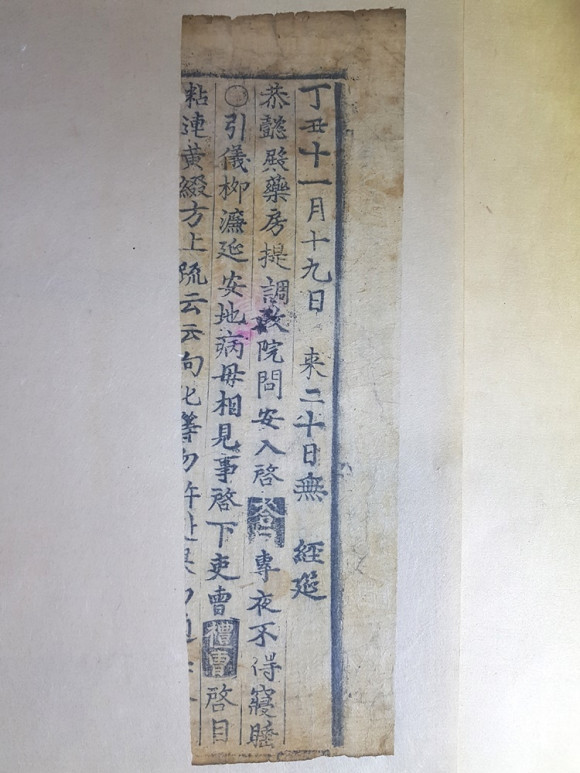 丁丑十一月十九日 來二十日無 經筵
恭懿殿藥房提調政院問安入啓 答曰 專夜不得寢睡
○引儀柳濂延安地病母相見事啓下吏曹 禮曹 啓目
粘連黃綴方上疏云云向化等勿許